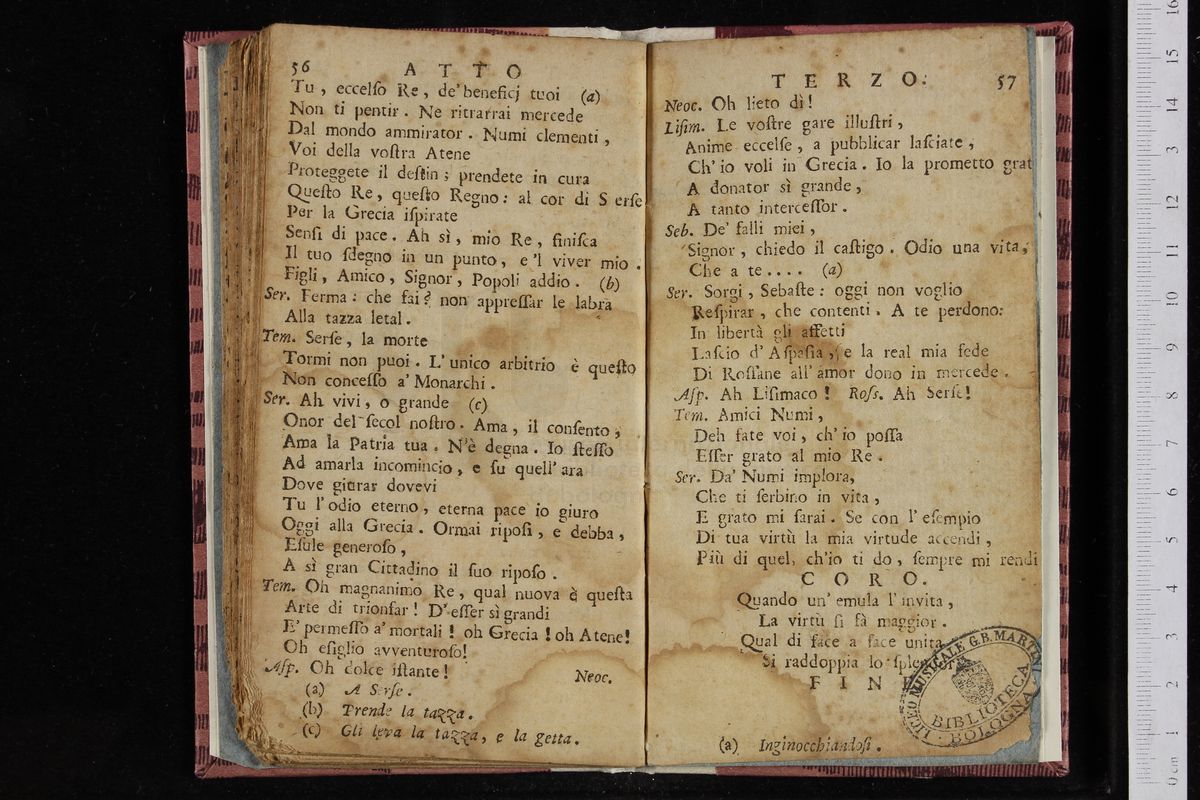 56 ATTO
Tu, eccelſo Re, de' beneficj tuoi (a)
Non ti pentir. Ne ritrarrai mercede
Dal mondo ammirator. Numi clementi,
Voi della voſtra Atene
Proteggete il deſtin; prendete in cura
Queſto Re, queſto Regno: al cor di S erſe
Per la Grecia iſpirate
Senſi di pace. Ah sì, mio Re, finiſca
Il tuo ſdegno in un punto, e 'l viver mio.
Figli, Amico, Signor, Popoli addio. (b)
Ser. Ferma: che fai? non appreſſar le labra
Alla tazza letal.
Tem. Serſe, la morte
Tormi non puoi. L' unico arbitrio è queſto
Non conceſſo a' Monarchi.
Ser. Ah vivi, o grande (c)
Onor del ſecol noſtro. Ama, il conſento,
Ama la Patria tua. N'è degna. Io ſteſſo
Ad amarla incomincio, e ſu quell' ara
Dove giurar dovevi
Tu l' odio eterno, eterna pace io giuro
Oggi alla Grecia. Ormai ripoſi, e debba,
Eſule generoſo,
A sì gran Cittadino il ſuo ripoſo.
Tem. Oh magnanimo Re, qual nuova è queſta
Arte di trionfar! D' eſſer sì grandi
E' permeſſo a' mortali! oh Grecia! oh Atene!
Oh eſiglio avventuroſo!
Aſp. Oh dolce iſtante!
Neoc.
(a) A Serſe.
(b) Prende la tazza.
(c) Gli leva la tazza, e la getta.
TERZO. 57
Neoc. Oh lieto dì!
Liſim. Le voſtre gare illuſtri,
Anime eccelſe, a pubblicar laſciate,
Ch' io voli in Grecia. Io la prometto grat
A donator sì grande,
A tanto interceſſor.
Seb. De' falli miei,
Signor, chiedo il caſtigo. Odio una vita,
Che a te.... (a)
Ser. Sorgi, Sebaſte: oggi non voglio
Reſpirar, che contenti. A te perdono:
In libertà gli affetti
Laſcio d' Aſpaſia, e la real mia fede
Di Roſſane all' amor dono in mercede.
Aſp. Ah Liſimaco! Roſſ. Ah Serſe!
Tem. Amici Numi,
Deh fate voi, ch' io poſſa
Eſſer grato al mio Re.
Ser. Da' Numi implora,
Che ti ſerbino in vita,
E grato mi ſarai. Se con l' eſempio
Di tua virtù la mia virtude accendi,
Più di quel, ch'io ti do, ſempre mi rendi
CORO.
Quando un' emula l' invita,
La virtù ſi fà maggior.
Qual di face a face unita
Si raddoppia lo ſplen
FINE
LICEO MUSICALE G.B. MARTINI
BIBLIOTECA
BOLOGNA
(a) Inginocchiandoſi.